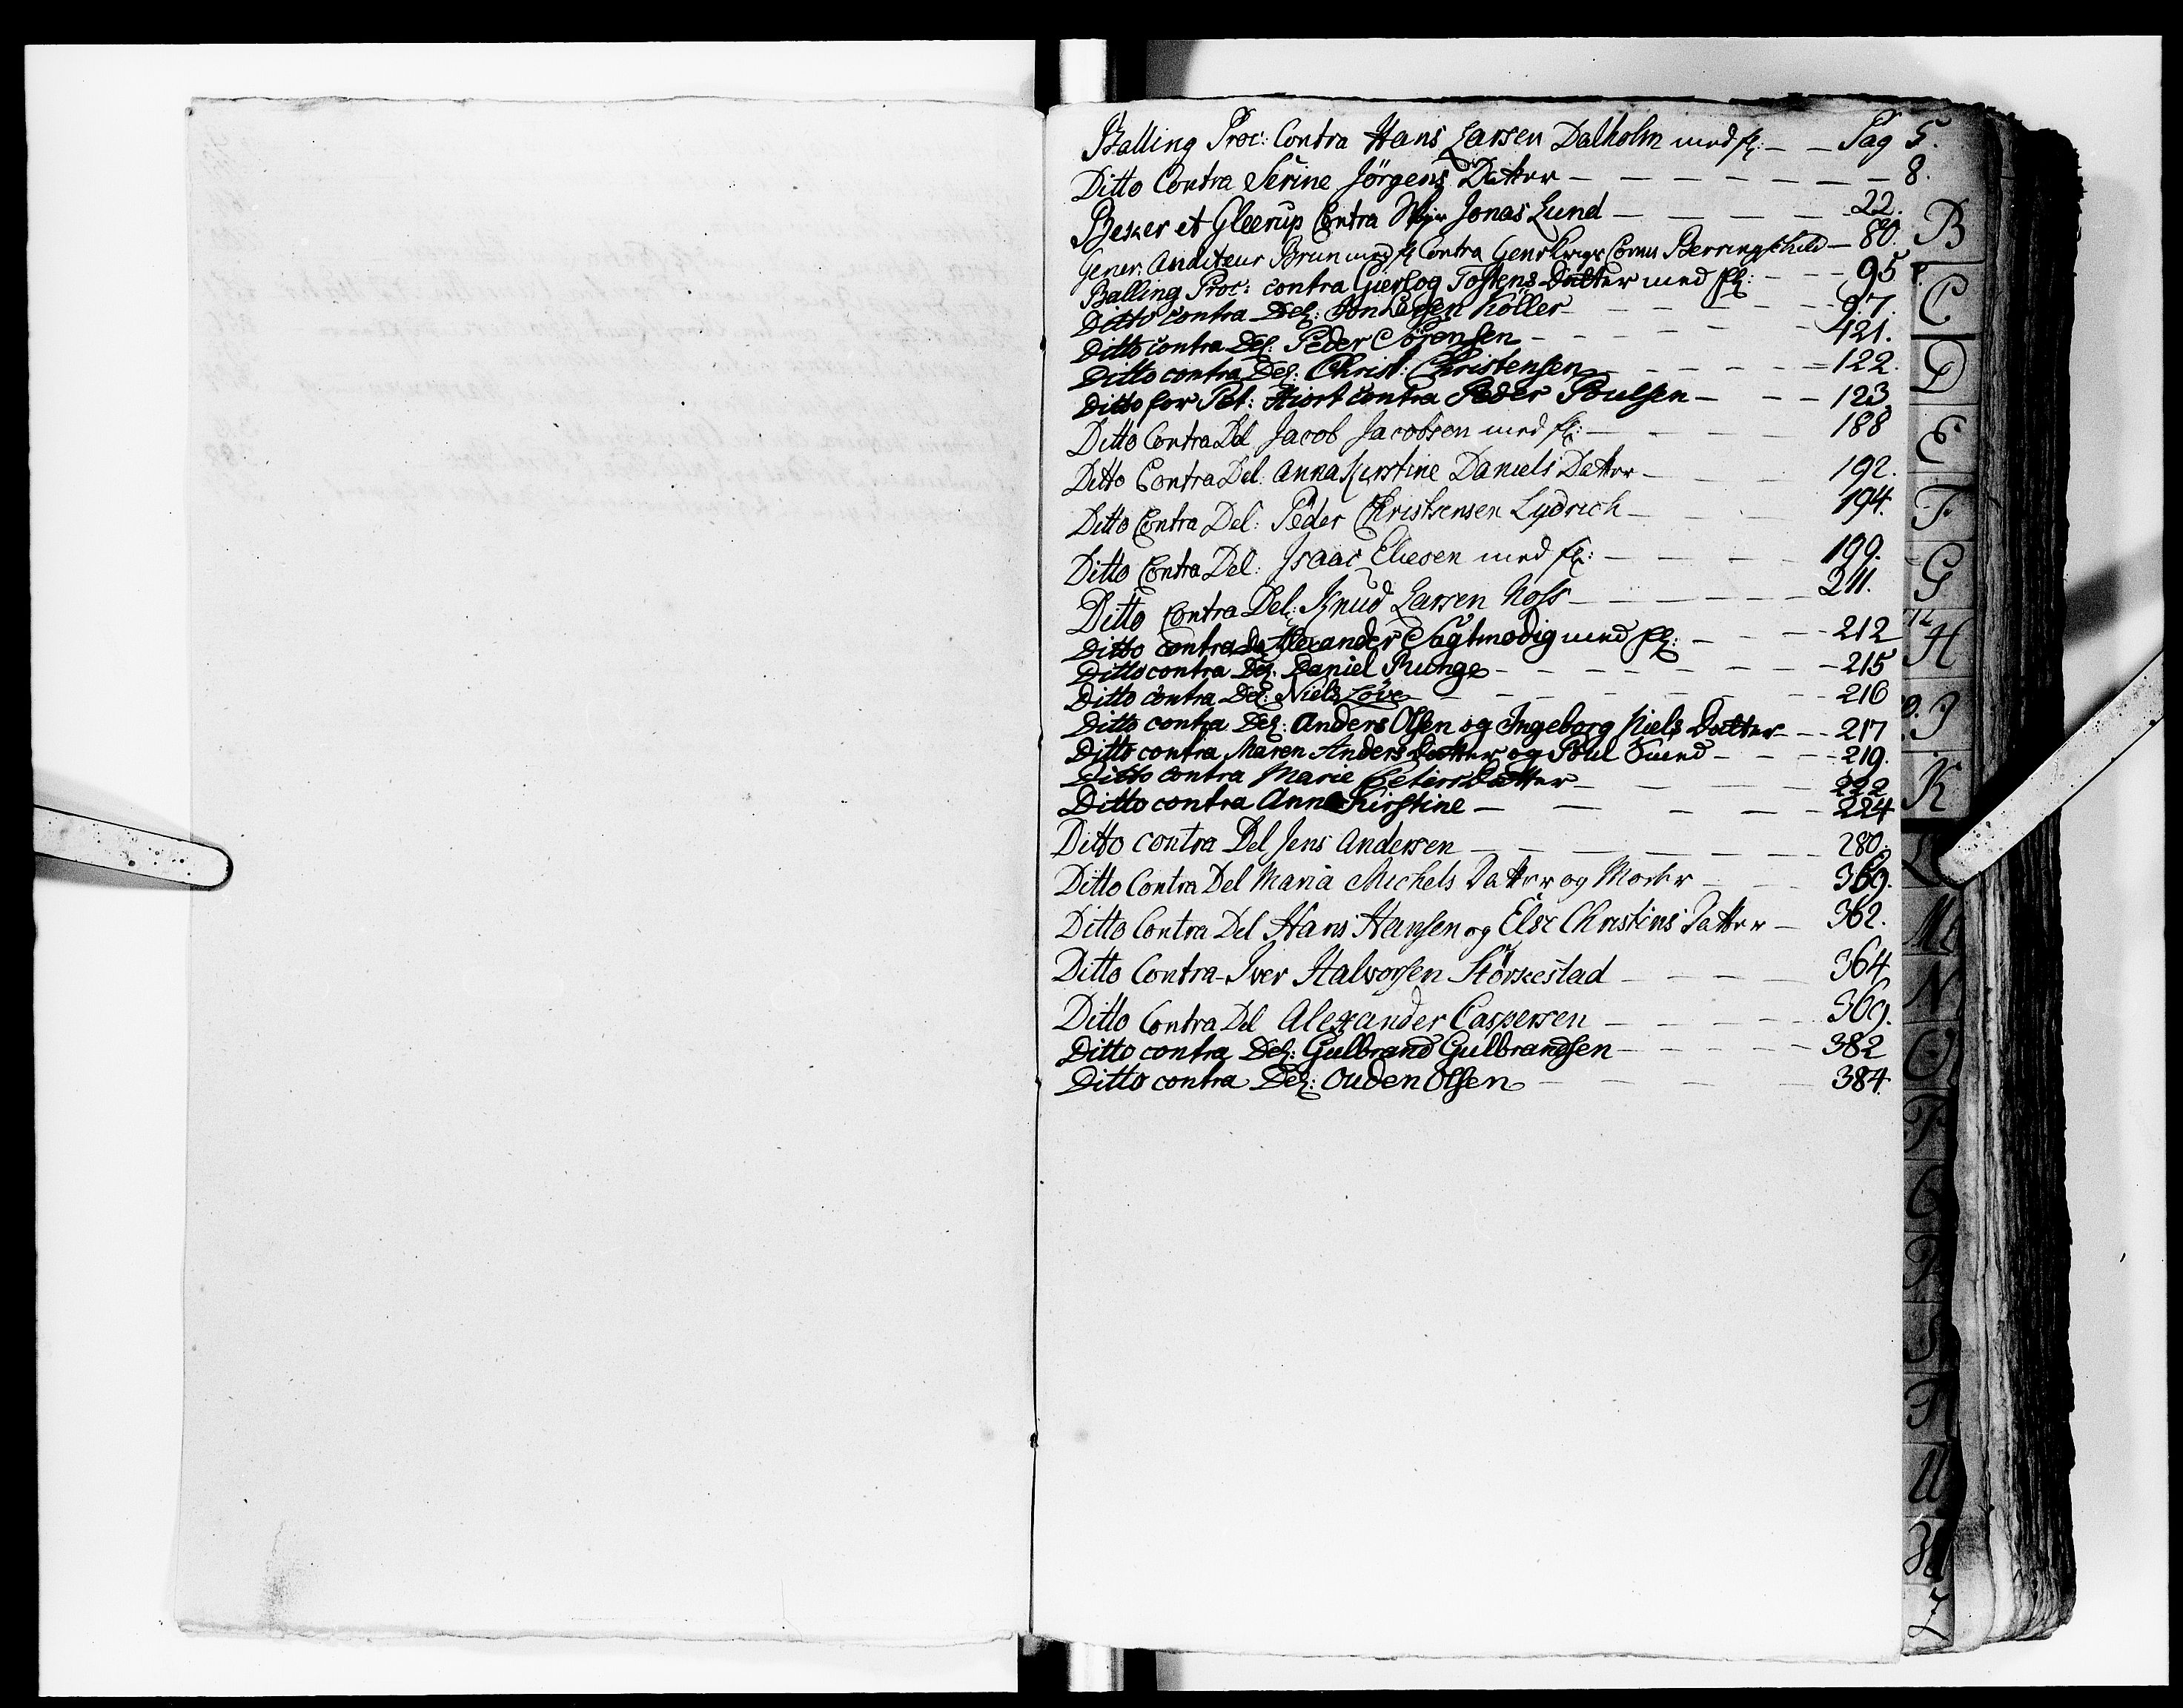 Balling Proc: Contra Hans Larsen Dalholm med fl: — — Pag 5.
Ditto Contra Serine Jörgens Datter — 8.
Besker et Gleerup Contra Jonas Lund — 22.
Gener: Auditeur Brun med fl Contra Berringschild — 80.
Balling Proc: contra Gierlog Tostens Datter med fl: — 95
Ditto contra Del: Jon Köller — 97.
Ditto contra Del: Peder Sörensen — 121.
Ditto contra Del: Christ: Christensen — 122.
Ditto for Pet: Hiort contra Peder Poulsen — 123.
Ditto Contra Del Jacob Jacobsen med fl: — 188
Ditto Contra Del: Anna Kirstine Daniels Datter — 192.
Ditto Contra Del: Peder Christensen Lydrich — 194.
Ditto Contra Del: Isaac Eliesen med fl: — 199.
Ditto Contra Del: Knud Larsen Noss — 211.
Ditto contra De Alexander Sagtmodig med fl: — 212
Ditto contra Del: Daniel Runge — 215
Ditto contra Del: Niels Löve — 216
Ditto contra Del: Anders Olsen og Ingeborg Niels Datter — 217
Ditto contra Maren Anders Datter og Poul Smed — 219.
Ditto contra Marie Peters Datter — 222
Ditto contra Anne Kirstine — 224
Ditto contra Del Jens Andersen — 280.
Ditto Contra Del Maria Michels Datter og Moder — 360.
Ditto Contra Del Hans Hansen og Else Christens Datter — 362.
Ditto Contra Iver Halvorsen Störkestad — 364
Ditto Contra Del Alexander Caspersen — 369.
Ditto contra Del: Gulbrand Gulbrandsen — 382
Ditto contra Del: Ouden Olsen — 384.
B
C
D
E
F
G
H
I
K
L
M
N
O
P
Q
R
S
T
U
Z